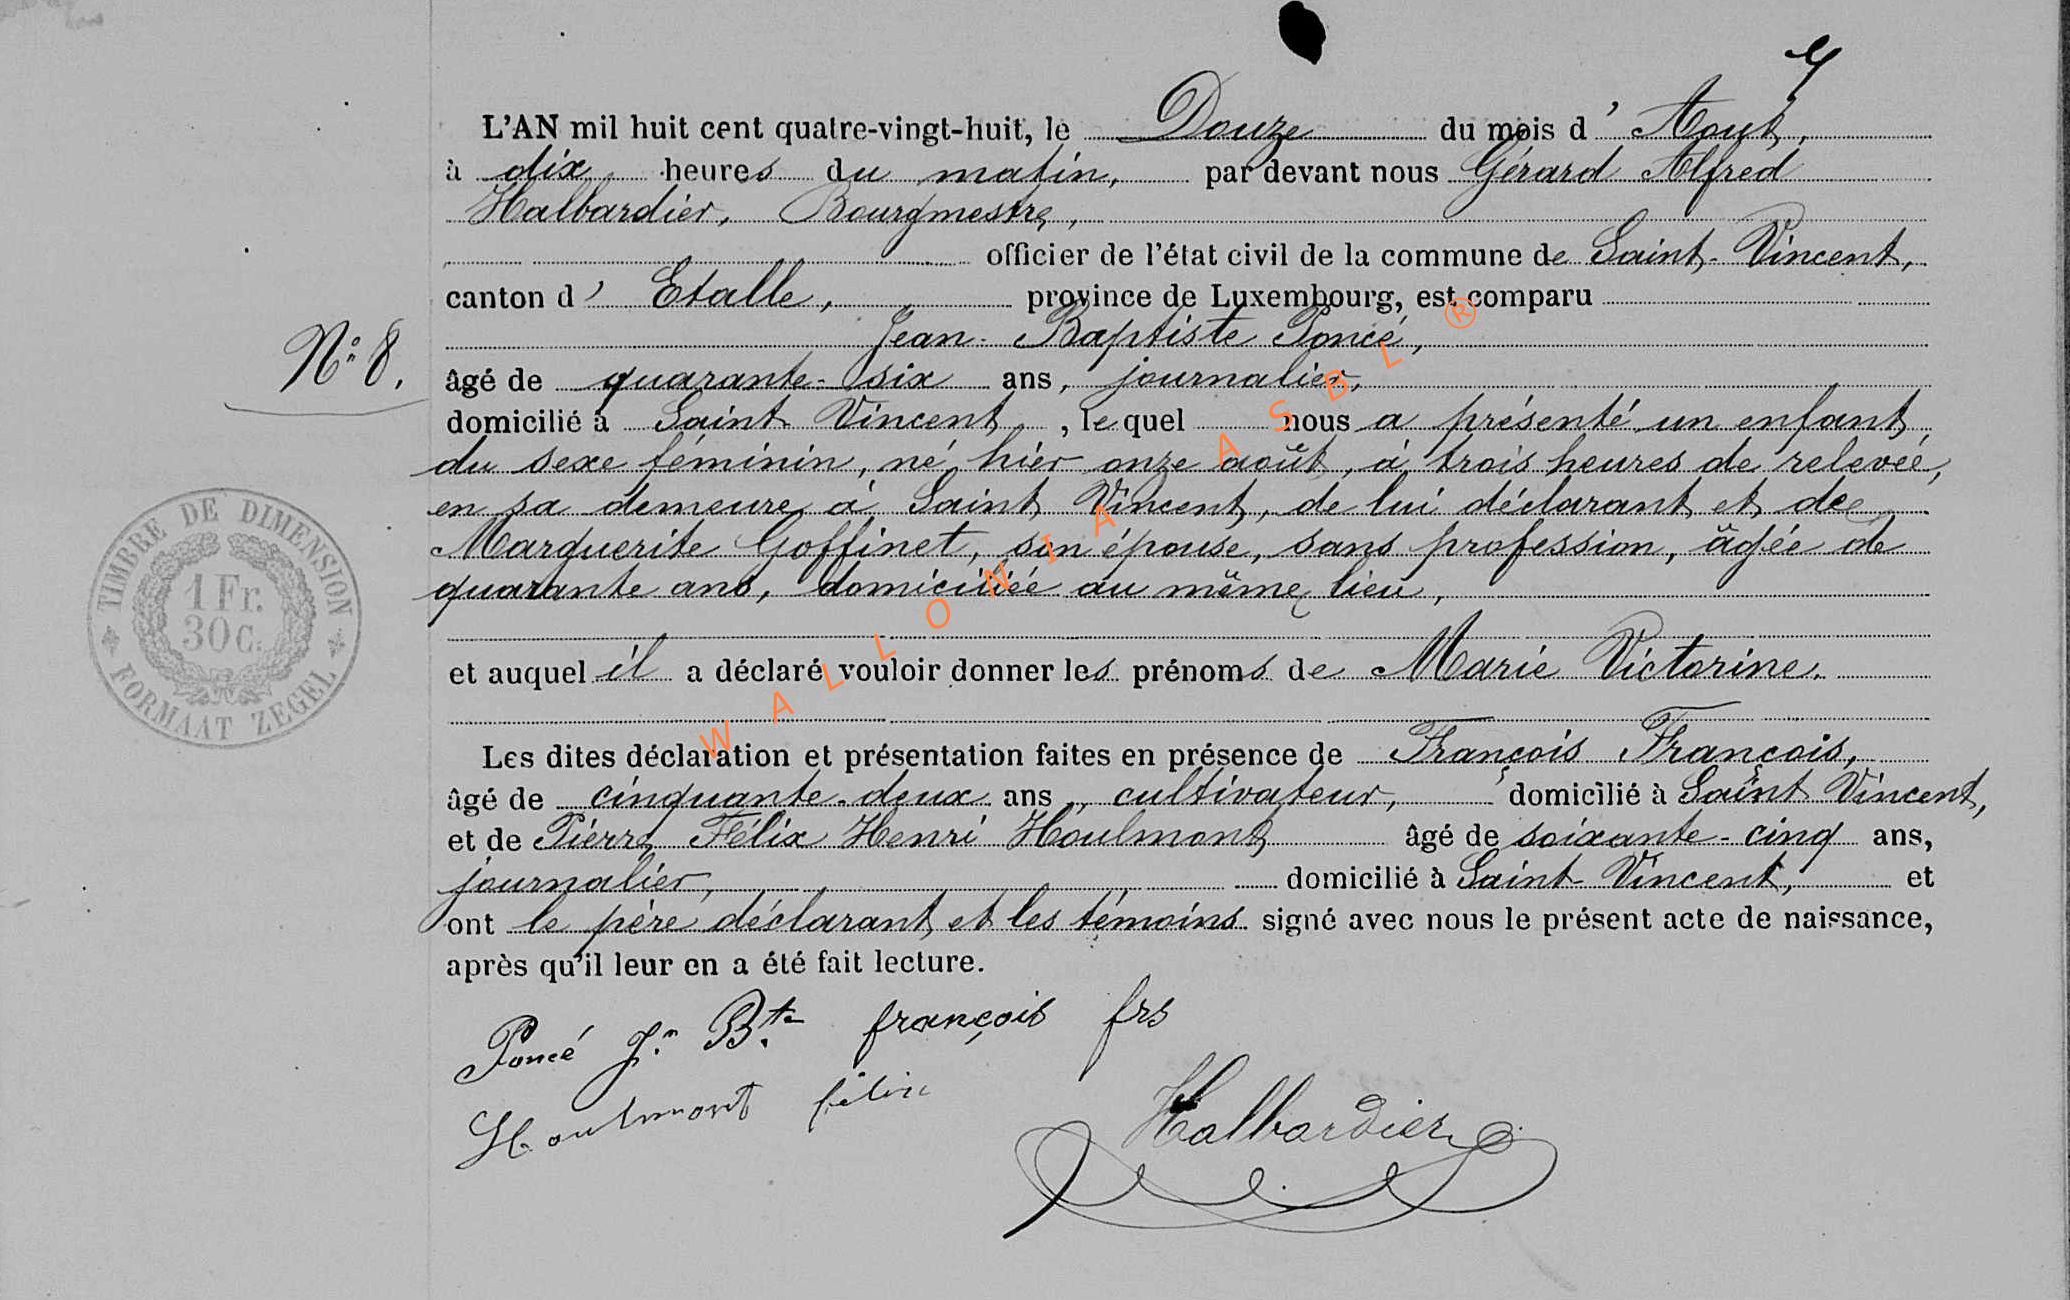 4
L'AN mil huit cent quatre-vingt-huit, le Douze du mois d' Aout,
à dix heures du matin, par devant nous Gérard Alfred
Halbardier, Bourgmestre,
officier de l'état civil de la commune de Saint-Vincent,
canton d' Etalle, province de Luxembourg, est comparu
Jean-Baptiste Poncé,
N° 8.
âgé de quarante-six ans, journalier,
domicilié à Saint Vincent, lequel nous a présenté un enfant
du sexe féminin, né hier onze août, à trois heures de relevée,
en sa demeure à Saint Vincent, de lui déclarant et de
Marguerite Goffinet, son épouse, sans profession, âgée de
quarante ans, domiciliée au même lieu,
et auquel il a déclaré vouloir donner les prénoms de Marie Victorine.
Les dites déclaration et présentation faites en présence de François François,
âgé de cinquante-deux ans, cultivateur, domicilié à Saint Vincent,
et de Pierre Félix Henri Houlmont âgé de soixante-cinq ans,
journalier, domicilié à Saint-Vincent, et
ont le père déclarant et les témoins signé avec nous le présent acte de naissance,
après qu'il leur en a été fait lecture.
Poncé Jn Bte françois frs
Houlmont félix
Halbardier
TIMBRE DE DIMENSION
1 Fr.
30 C.
FORMAAT ZEGEL
WALLONIA ASBL ®